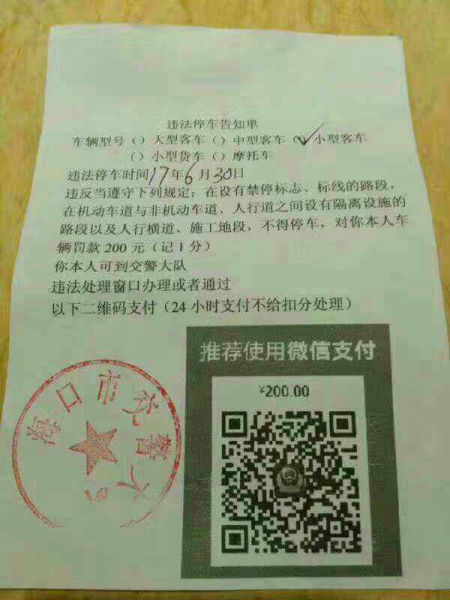 违法停车告知单
车辆型号 () 大型客车 () 中型客车 () 小型客车
() 小型货车 () 摩托车
违法停车时间17年6月30日
违反当遵守下列规定：在设有禁停标志、标线的路段，
在机动车道与非机动车道、人行道之间设有隔离设施的
路段以及人行横道、施工地段，不得停车，对你本人车
辆罚款 200 元（记 1 分）
你本人可到交警大队
违法处理窗口办理或者通过
以下二维码支付（24 小时支付不给扣分处理）
推荐使用微信支付
¥200.00
口市交警大